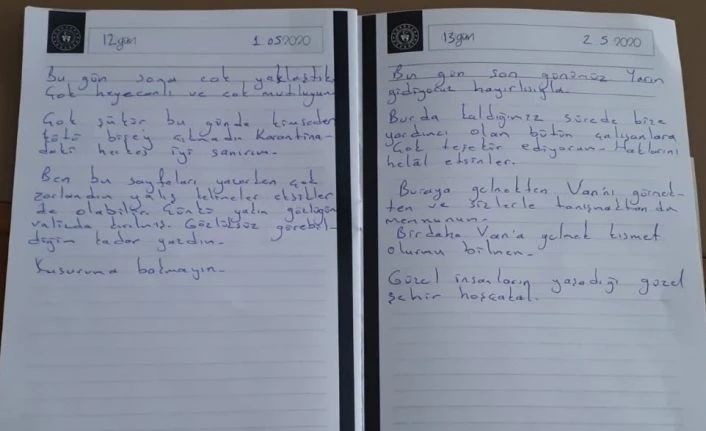 12.gün 1 05 2020
Bu gün sona çok yaklaştık
Çok heyecanlı ve çok mutluyum
Çok şükür bu günde kimseden
kötü bişey çıkmadı. Karantina-
daki herkes iyi sanırım.
Ben bu sayfaları yazarken çok
zorlandım yalış kelimeler eksikler
de olabilir Çünkü yakın gözlüğüm
valizde kırılmış. Gözlüksüz görebil-
diğim kadar yazdım.
Kusuruma bakmayın.
13gün 2 5 2020
Bu gün son günümüz Yarın
gidiyoruz hayırlısıyla.
Burda kaldığımız sürede bize
yardımcı olan bütün çalışanlara
Çok teşekür ediyorum. Haklarını
helâl etsinler.
Buraya gelmekten Van'ı görmek-
ten ve sizlerle tanışmaktan da
memnunum.
Birdaha Van'a gelmek kısmet
olurmu bilmem.
Güzel insanların yaşadığı güzel
şehir hoşçakal.